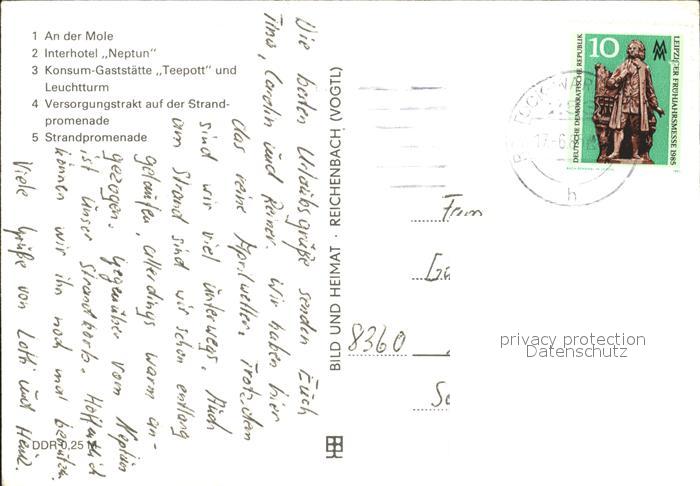 1 An der Mole
2 Interhotel „Neptun“
3 Konsum-Gaststätte „Teepott“ und
Leuchtturm
4 Versorgungstrakt auf der Strand-
promenade
5 Strandpromenade
Die besten Urlaubsgrüße senden Euch
Timo, Carolin und Reiner. Wir haben hier
das reine Aprilwetter. Trotzdem
sind wir viel unterwegs. Auch
am Strand sind wir schon entlang
gelaufen, allerdings warm an-
gezogen. Gegenüber vom Neptun
ist unser Strandkorb. Hoffentlich
können wir ihn noch mal benutzen.
Viele Grüße von Lotti und Heinz.
DDR 0,25 M
BILD UND HEIMAT · REICHENBACH (VOGTL)
DEUTSCHE DEMOKRATISCHE REPUBLIK
10
LEIPZIGER FRÜHJAHRSMESSE 1985
17.-6.8
h
Fam
8360
privacy protection
Datenschutz